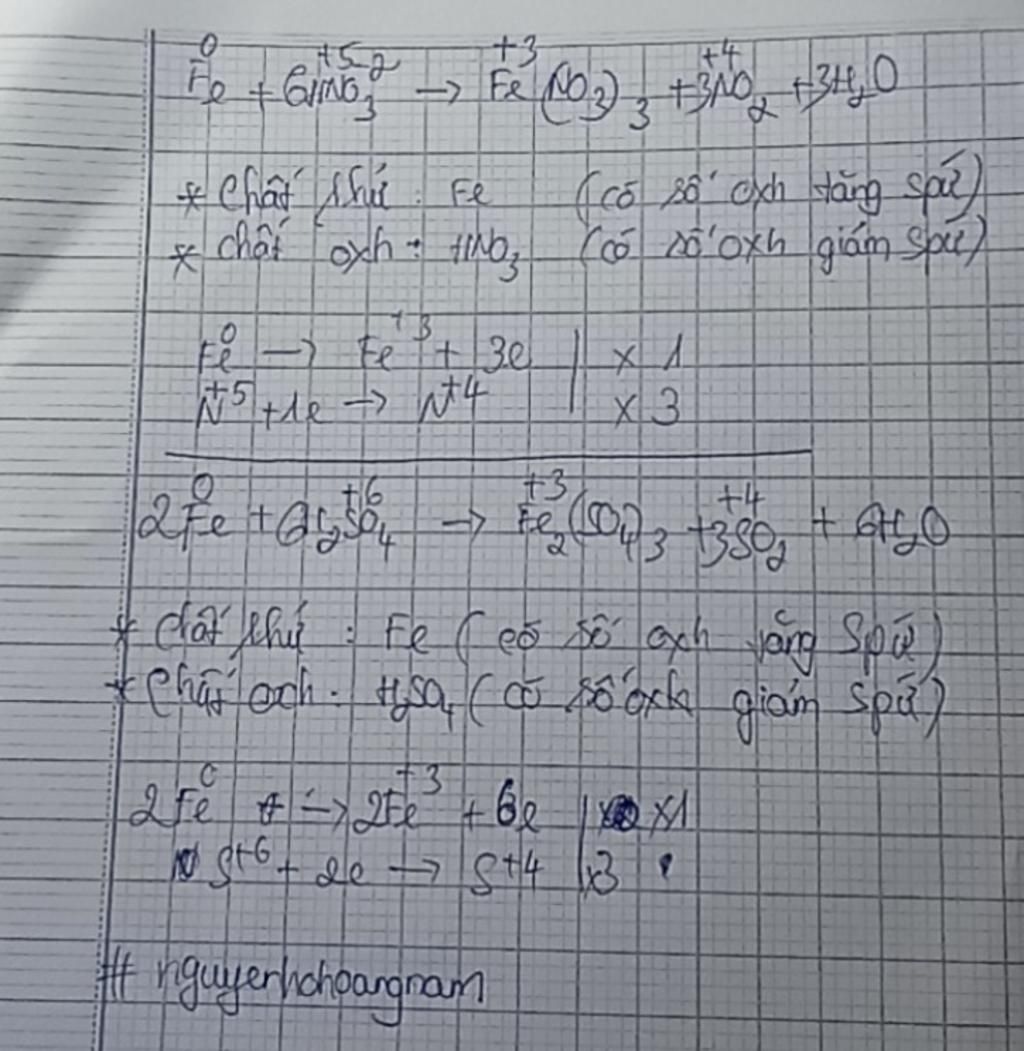 0 +5 -2 +3 +4
Fe + 6HNO3 → Fe(NO3)3 + 3NO2 + 3H2O
* Chất khử : Fe (có số oxh tăng spứ)
* Chất oxh : HNO3 (có số oxh giảm spứ)
Fe⁰ → Fe⁺³ + 3e | x 1
N⁺⁵ + 1e → N⁺⁴ | x 3
0 +6 +3 +4
2Fe + 6H2SO4 → Fe2(SO4)3 + 3SO2 + 6H2O
* Chất khử : Fe (có số oxh tăng spứ)
* Chất oxh : H2SO4 (có số oxh giảm spứ)
2Fe⁰ → 2Fe⁺³ + 6e | x1
S⁺⁶ + 2e → S⁺⁴ | x3
# nguyenhchoangnam